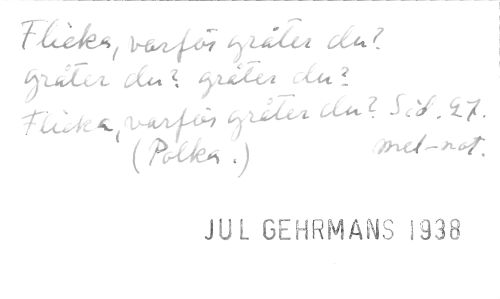 Flicka, varför gråter du?
gråter du? gråter du?
Flicka, varför gråter du? Sid. 27.
(Polka.) mel-not.
JUL GEHRMANS 1938